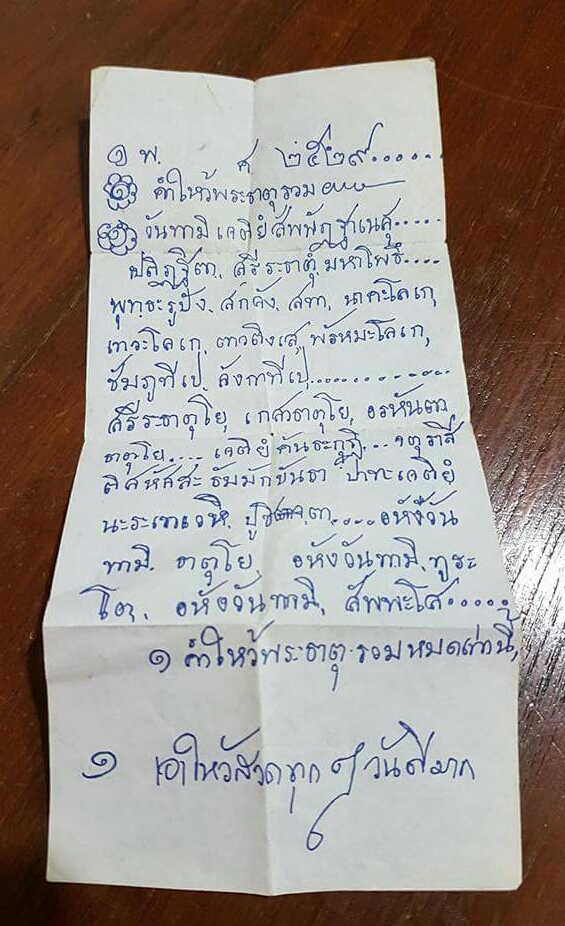 ๑ พ. ศ ๒๕๒๙......
๑ คำไหว้พระธาตุรวม
๑ วันทามิ เจติยํ สัพพัฏฐาเนสุ....
ปติฏฐิตา, สรีระธาตุํ มหาโพธิํ....
พุทธะรูปัง, สกลัง, สทา, นาคะโลเก,
เทวะโลเก, ดาวดึงเส, พรัหมะโลเก,
ชัมภูทีเป, ลังกาทีเป,..............
สรีระธาตุโย, เกสาธาตุโย, อรหันตา
ธาตุโย.... เจติยํ คันธะกุฏิ... จตุราสี
ติสหัสสะ ธัมมักขันธา ปาทะเจติยํ
นะระเทเวหิ, ปูชิตา.... อหังวัน
ทามิ. ธาตุโย, อหังวันทามิ, ทูระ
โต, อหังวันทามิ, สัพพะโส......
๑ คำไหว้พระธาตุรวมหมดเท่านี้,
๑ เอาไหว้สวดทุก ๆ วันดีมาก